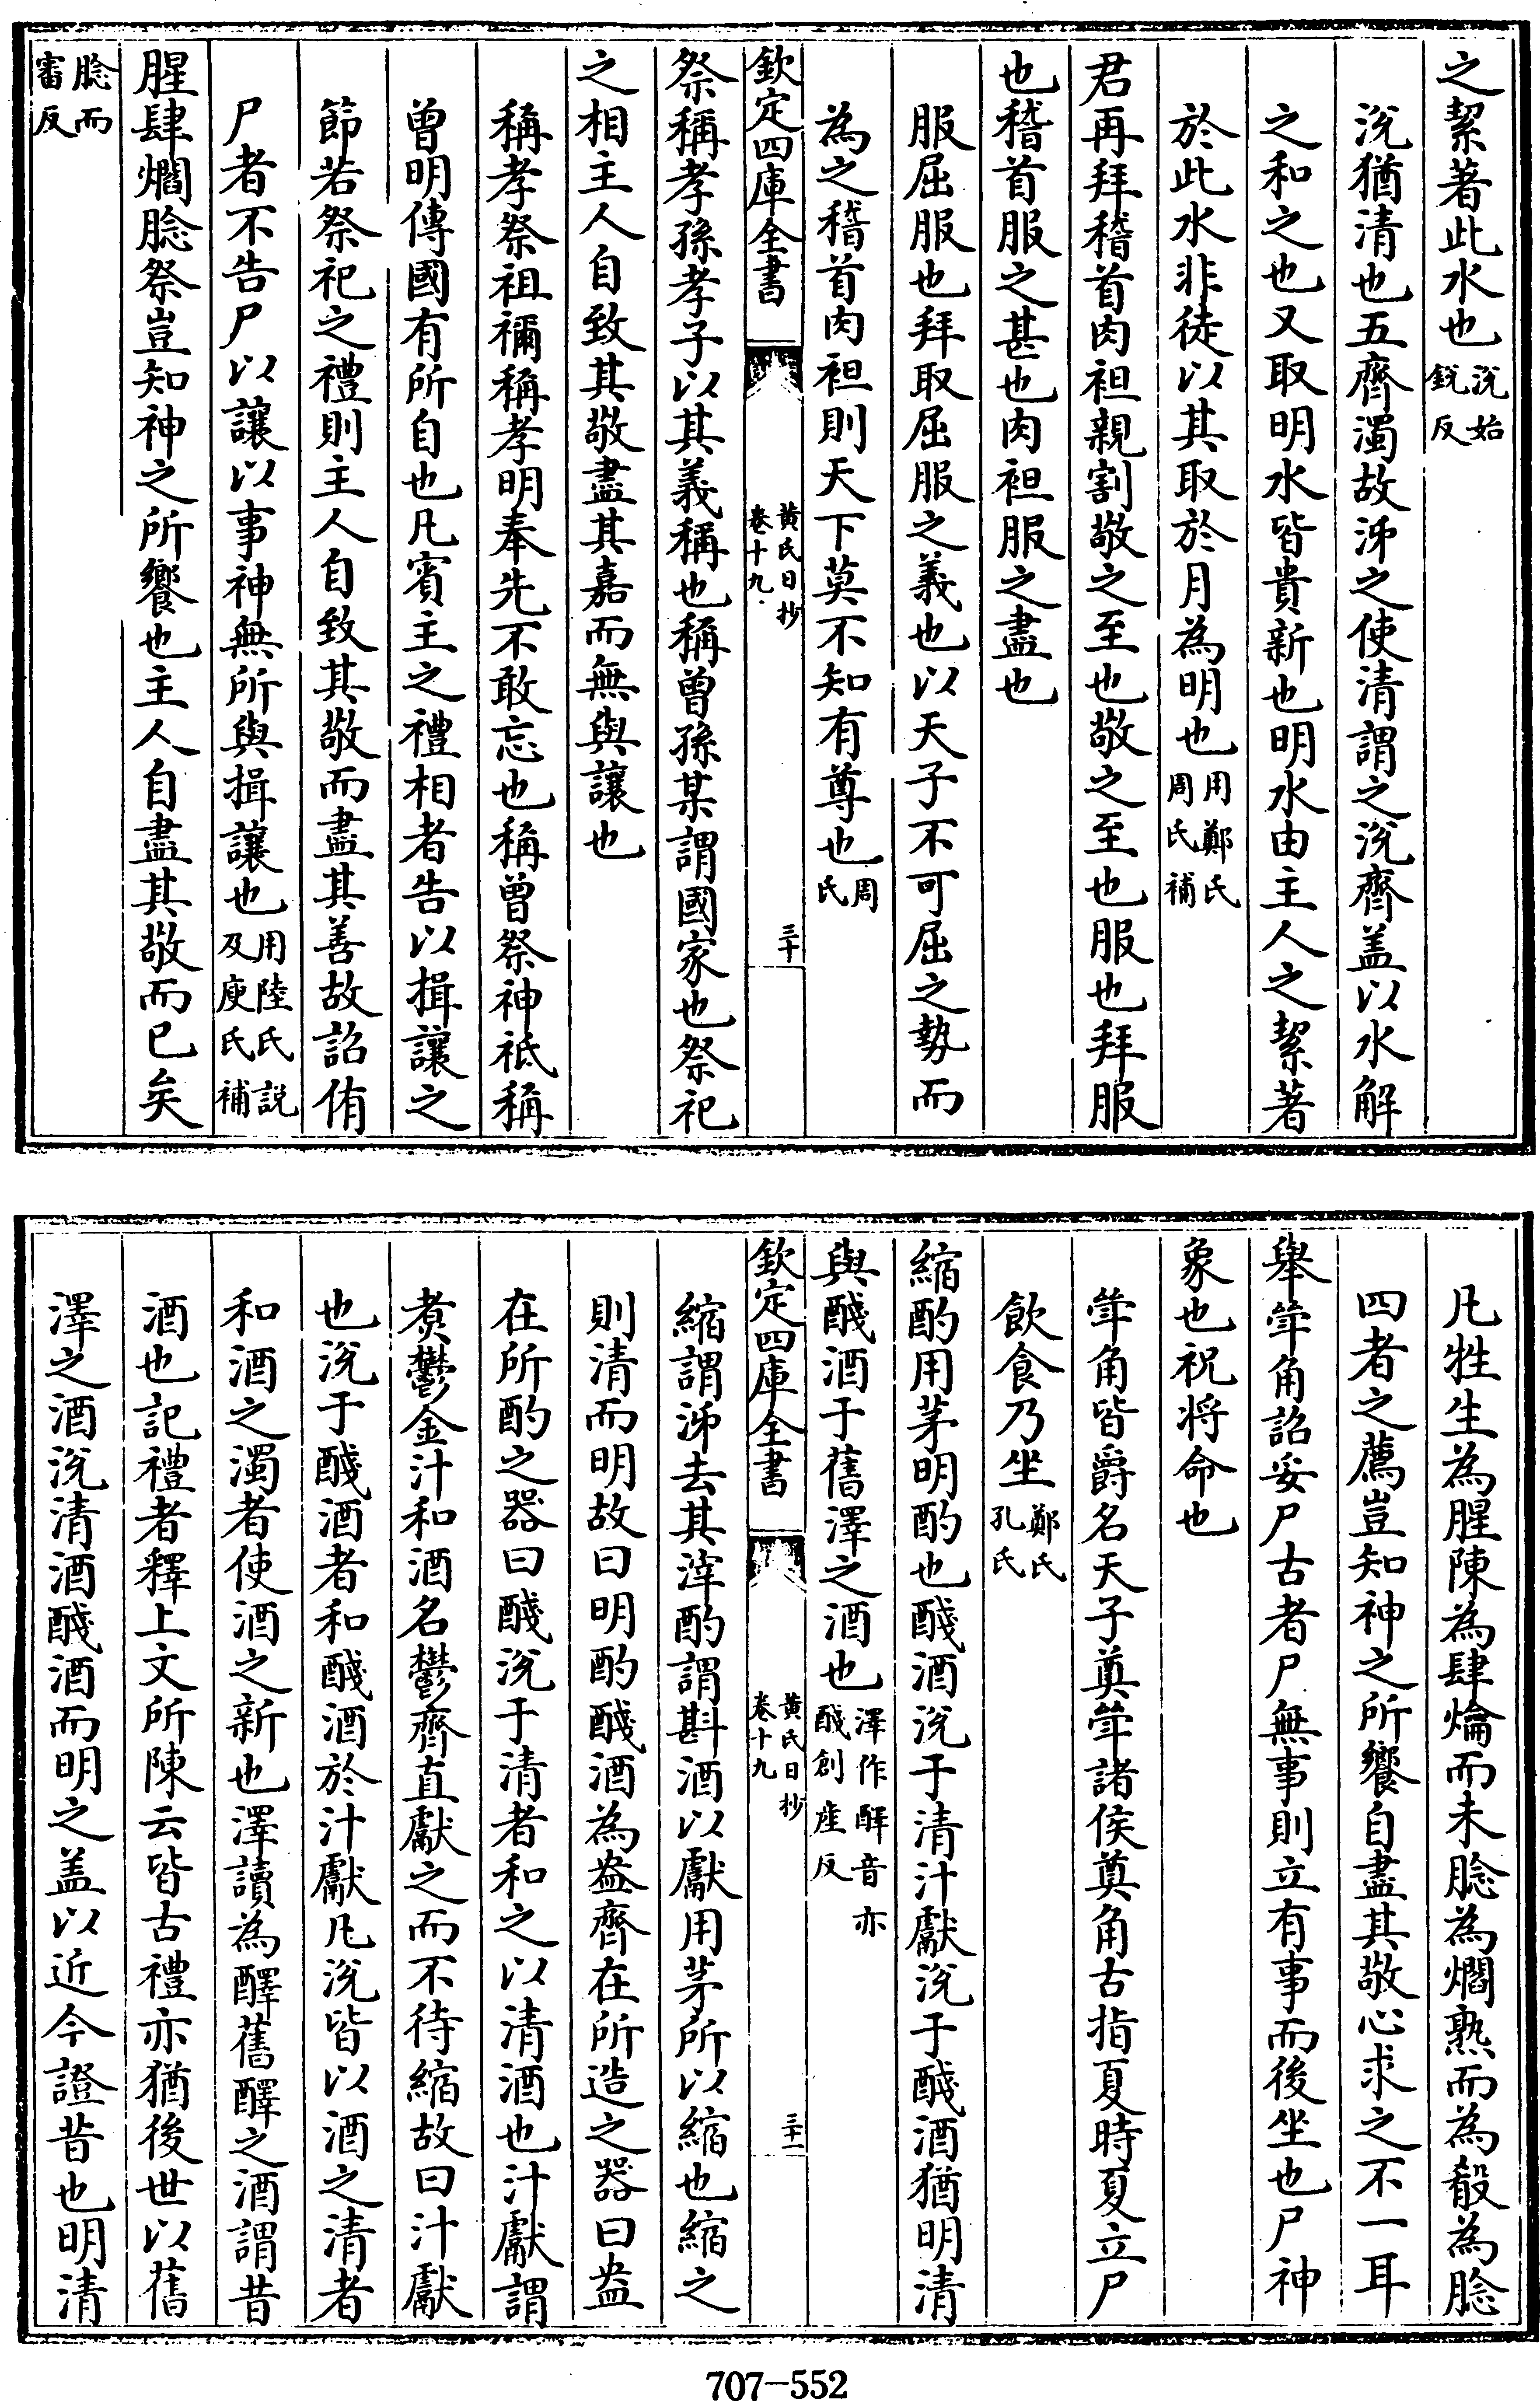 之絜著此水也涚始銳反
涚猶清也五齊濁故泲之使清謂之涚齊盖以水解
之和之也又取明水皆貴新也明水由主人之絜著
於此水非徒以其取於月為明也用鄭氏周氏補
君再拜稽首肉袒親割敬之至也敬之至也服也拜服
也稽首服之甚也肉袒服之盡也
服屈服也拜取屈服之義也以天子不可屈之勢而
為之稽首肉袒則天下莫不知有尊也周氏
欽定四庫全書 黃氏日抄卷十九 三十
祭稱孝孫孝子以其義稱也稱曾孫某謂國家也祭祀
之相主人自致其敬盡其嘉而無與讓也
稱孝祭祖禰稱孝明奉先不敢忘也稱曾祭神祗稱
曾明傳國有所自也凡賓主之禮相者告以揖讓之
節若祭祀之禮則主人自致其敬而盡其善故詔侑
尸者不告尸以讓以事神無所與揖讓也用陸氏說及庾氏補
腥肆爓腍祭豈知神之所饗也主人自盡其敬而已矣
腍而審反
凡牲生為腥陳為肆爚而未腍為爓熟而為殽為腍
四者之薦豈知神之所饗自盡其敬心求之不一耳
舉斚角詔妥尸古者尸無事則立有事而後坐也尸神
象也祝將命也
斚角皆爵名天子奠斚諸侯奠角古指夏時夏立尸
飲食乃坐鄭氏孔氏
縮酌用茅明酌也醆酒涚于清汁獻涚于醆酒猶明清
與醆酒于舊澤之酒也澤作醳音亦醆創産反
欽定四庫全書 黃氏日抄卷十九 三十一
縮謂泲去其滓酌謂斟酒以獻用茅所以縮也縮之
則清而明故曰明酌醆酒為盎齊在所造之器曰盎
在所酌之器曰醆涚于清者和之以清酒也汁獻謂
煑鬱金汁和酒名鬱齊直獻之而不待縮故曰汁獻
也涚于醆酒者和醆酒於汁獻凡涚皆以酒之清者
和酒之濁者使酒之新也澤讀為醳舊醳之酒謂昔
酒也記禮者釋上文所陳云皆古禮亦猶後世以舊
澤之酒涚清酒醆酒而明之盖以近今證昔也明清
707-552